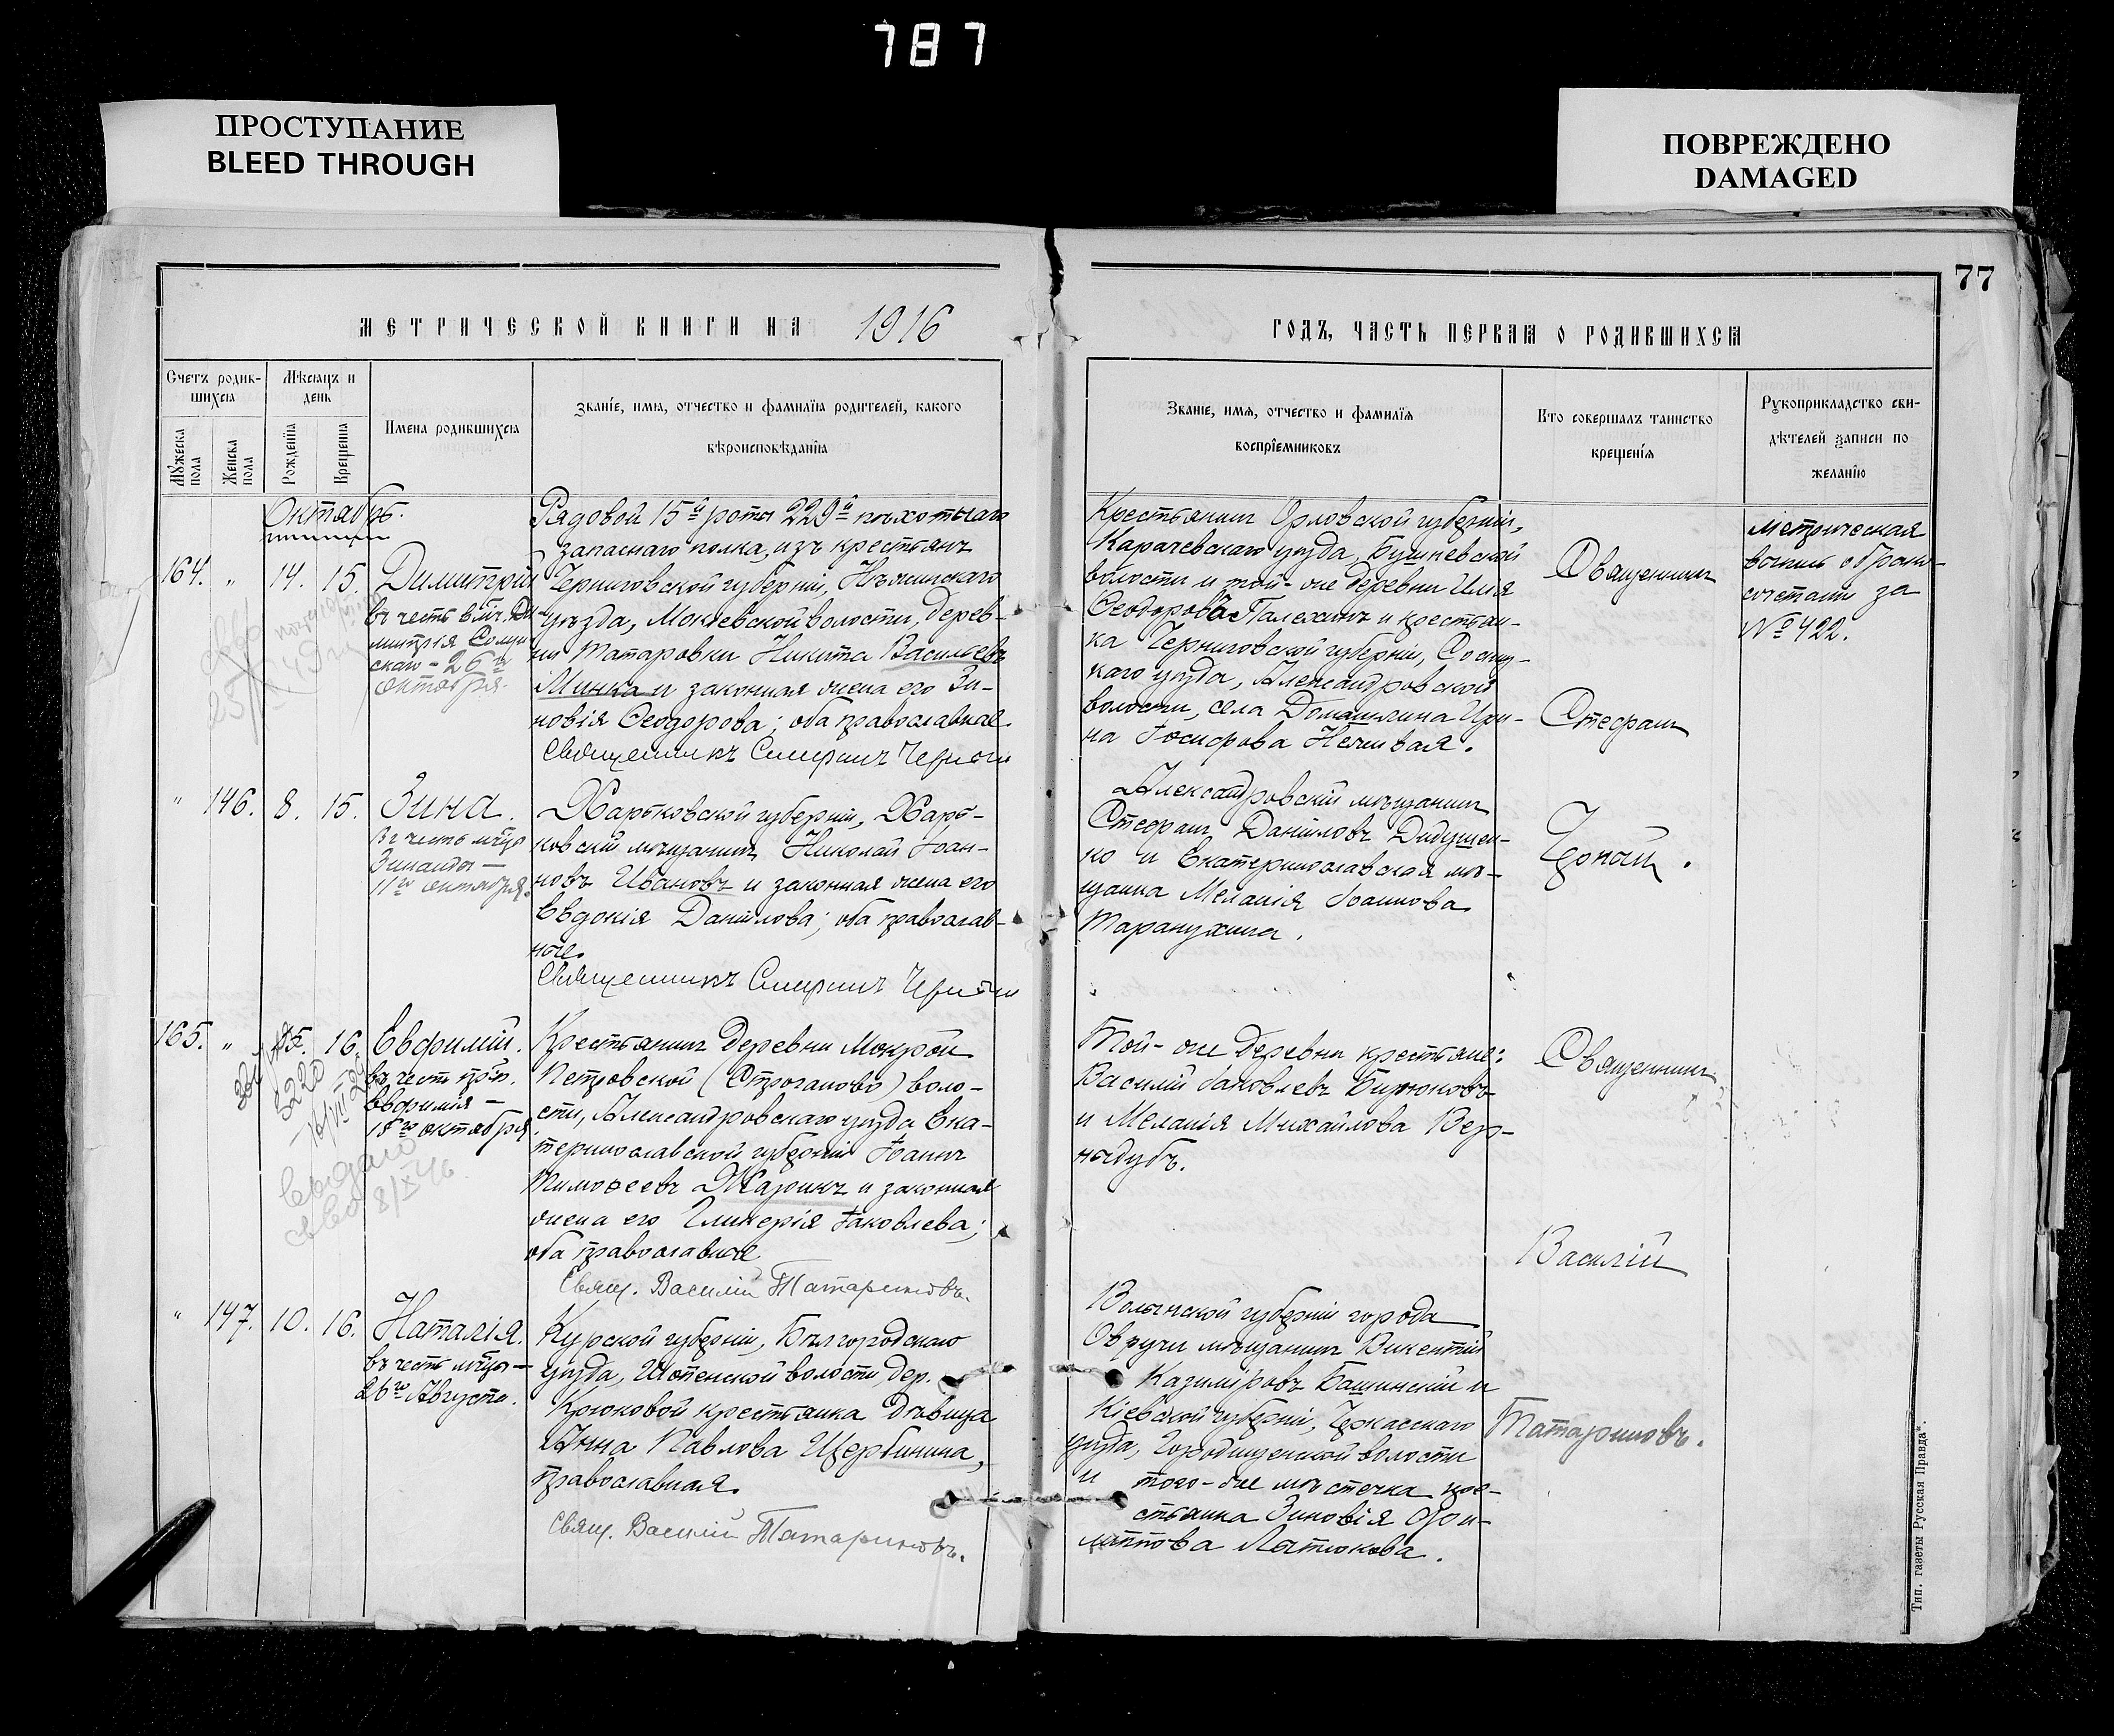 787
ПРОСТУПАНИЕ
BLEED THROUGH
ПОВРЕЖДЕНО
DAMAGED
77
МЕТРИЧЕСКОЙ КНИГИ НА 1916
ГОДЪ, ЧАСТЬ ПЕРВАЯ О РОДИВШИХСЯ
Счетъ родив-
шихся
Мѣсяцъ и
день
Мужеска
пола
Женска
пола
Рожденія
Крещенія
Имена родившихся
Званіе, имя, отчество и фамилія родителей, какого
вѣроисповѣданія
Званіе, имя, отчество и фамилія
воспріемниковъ
Кто совершалъ таинство
крещенія
Рукоприкладство сви-
дѣтелей записи по
желанію
Октябрь.
164. " 14. 15. Димитрій
въ честь влмч. Ди-
митрія Солун
скаго - 26го
октября.
Рядовой 15й роты 229й пѣхотнаго
запаснаго полка, изъ крестьянъ
Черниговской губерніи, Нѣжинскаго
уѣзда, Мокіевской волости, дерев-
ни Татаровки Никита Васильевъ
Минка и законная жена его Зи-
новія Ѳеодорова; оба православные.
Священникъ Стефанъ
Крестьянинъ Орловской губерніи,
Карачевскаго уѣзда, Бушневской
волости и той-же деревни Илія
Ѳеодоровъ Палехинъ и крестьян-
ка Черниговской губерніи, Сосниц-
каго уѣзда, Александровской
волости, села Домашлина Ири-
на Іосифова
Священникъ
Стефанъ
Метрическая
выпись о брако-
сочетаніи за
№ 422.
" 146. 8. 15. Зина.
въ честь мчцы
Зинаиды -
11го октября.
Харьковской губерніи, Харь-
ковскій мѣщанинъ Николай Іоан-
новъ Ивановъ и законная жена его
Евдокія Данилова; оба православ-
ные.
Священникъ Стефанъ
Александровскій мѣщанинъ
Стефанъ Даниловъ Дидушен-
ко и Екатеринославская мѣ-
щанка Меланія Іоаннова
Таранухина.
165. " 15. 16. Евфимій.
въ честь прп.
Евфимія -
15го октября
3220
Выдано
8/X 46
Крестьянинъ деревни Мокрой
Петровской (Строганово) воло-
сти, Александровскаго уѣзда Ека-
теринославской губерніи Іоаннъ
Тимоѳеевъ и законная
жена его Гликерія Іаковлева;
оба православные
Свящ. Василій Татариновъ.
Той-же деревни крестьяне:
Василій Іаковлевъ Бирюковъ
и Меланія Михайлова Вер-
нидубъ.
Священникъ
Василій
Татариновъ.
" 147. 10. 16. Наталія.
въ честь мчцы -
26го Августа.
Курской губерніи, Бѣлгородскаго
уѣзда, Шопенской волости, дер.
Крюковой крестьянка дѣвица
Анна Павлова Щербинина,
православная.
Свящ. Василій Татариновъ.
Волынской губерніи города
Овручи мѣщанинъ Викентій
Казиміровъ Башинскій и
Кіевской губерніи, Черкасскаго
уѣзда, Городищенской волости
и того-же мѣстечка кре-
стьянка Зиновія Фи-
липпова Латюкова.
Тип. газеты „Русская Правда".